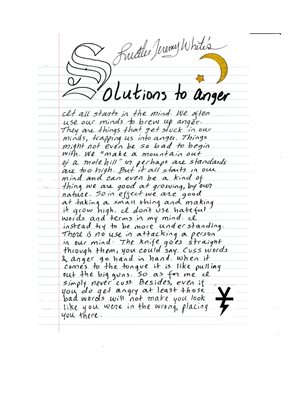 Luettes Jeremy White's
Solutions to anger
It all starts in the mind. We often
use our minds to brew up anger.
They are things that get stuck in our
minds, trapping us into anger. Things
might not even be so bad to begin
with. We "make a mountain out
of a mole hill" or perhaps are standards
are too high. But it all starts in our
mind and can even be a kind of
thing we are good at growing, by our
nature. So in effect we are good
at taking a small thing and making
it grow high. I don't use hateful
words and terms in my mind. I
instead try to be more understanding.
There is no use in attacking a person
in our mind. The Knife goes straight
through them, you could say. Cuss words
& anger go hand in hand. When it
comes to the tongue it is like pulling
out the big guns. So as for me I
simply never cuss. Besides, even if
you do get angry at least those
bad words will not make you look
like you were in the wrong, placing
you there.